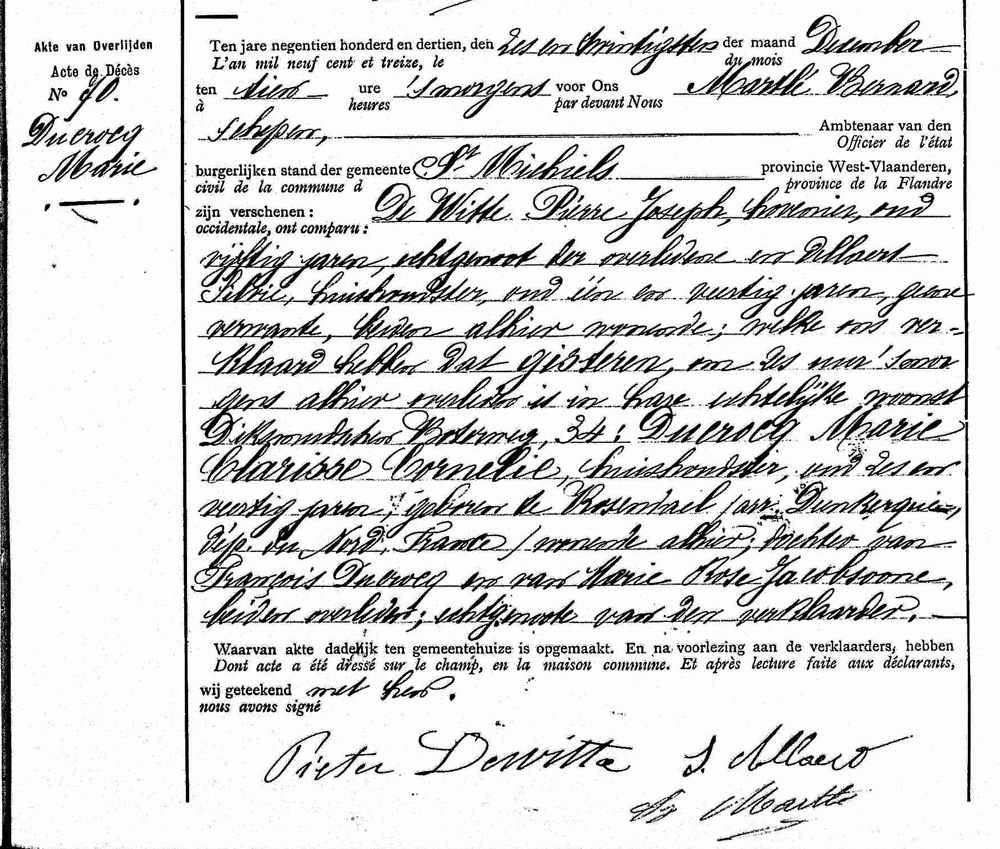 Akte van Overlijden
Acte de Décès
No 70.
Ducrocq
Marie
Ten jare negentien honderd en dertien, den zes en twintigsten der maand December
L'an mil neuf cent et treize, le du mois
ten tien ure 'smorgens voor Ons Martlé Bernard,
à heures par devant Nous
schepen, Ambtenaar van den
Officier de l'état
burgerlijken stand der gemeente St Michiels provincie West-Vlaanderen,
civil de la commune d province de la Flandre
zijn verschenen: De Witte Pierre Joseph, hovenier, oud
occidentale, ont comparu:
vijftig jaren, echtgenoot der overledene en Allaert
Silvie, huishoudster, oud één en veertig jaren, geene
verwante, beiden alhier wonende; welke ons ver-
klaard hebben dat gisteren, om zes uur 'smor
gens alhier overleden is in hare echtelijke woonst
Diksmudschen Boterweg, 34: Ducrocq Marie
Clarisse Cornelie, huishoudster, oud zes en
veertig jaren, geboren te Rosendael /arr. Dunkerque,
dép. du Nord, France/ wonende alhier; dochter van
François Ducrocq en van Marie Rose Jacobsoone,
beiden overleden; echtgenoote van den verklaarder.
Waarvan akte dadelijk ten gemeentehuize is opgemaakt. En na voorlezing aan de verklaarders, hebben
Dont acte a été dressé sur le champ, en la maison commune. Et après lecture faite aux déclarants,
wij geteekend met hen.
nous avons signé
Pieter Dewitte S. Allaert
Martlé